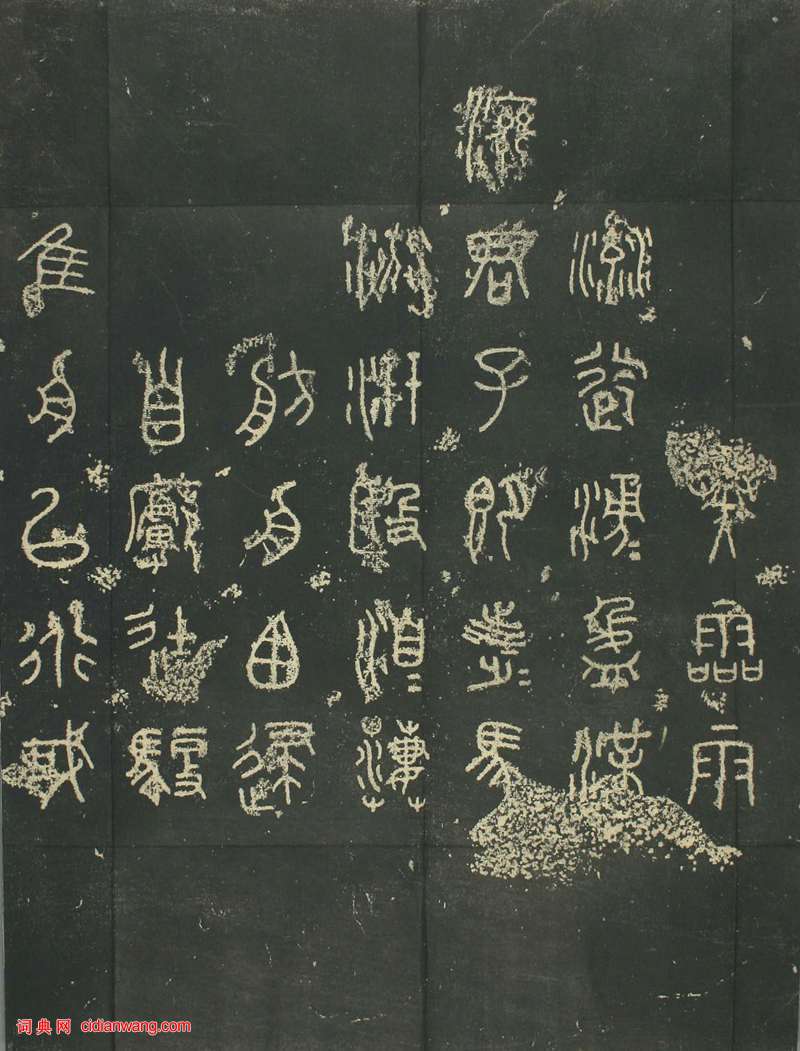 癸霝雨
流迄湧盈渫
濟君子即涉馬
流汧殹洎淒
舫舟囪逮
自廓徒馭
隹舟以行或
词典网 cidianwang.com